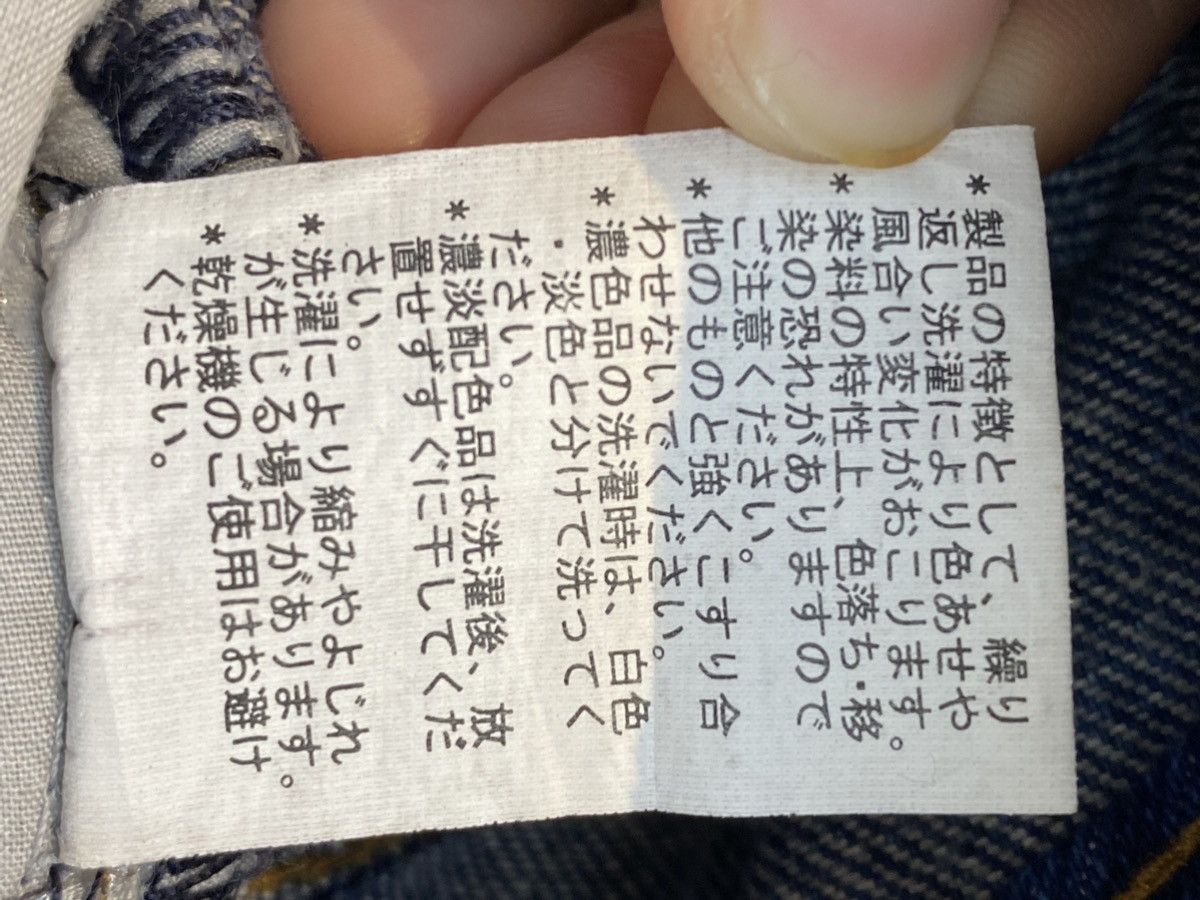 *製品の特徴として、繰り
返し洗濯により色あせや
風合い変化がおこります。
*染料の特性上、色落ち・移
染の恐れがありますので
ご注意ください。
*他のものと強くこすり合
わせないでください。
*濃色品の洗濯時は、白色
・淡色と分けて洗ってく
ださい。
*濃淡配色品は洗濯後、放
置せずすぐに干してくだ
さい。
*洗濯により縮みやよじれ
が生じる場合があります。
*乾燥機のご使用はお避け
ください。